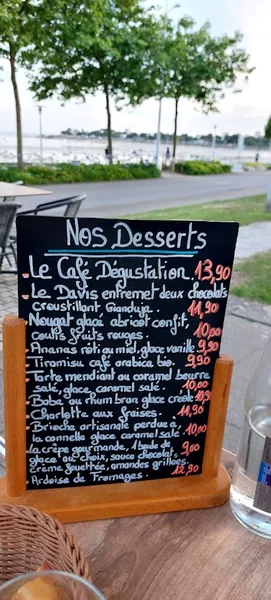 Nos Desserts
Le Café Dégustation. 13,90
Le Davis entremet deux chocolats
Croustillant Gianduja. 11,90
Nougat glacé abricot confit,
coulis fruits rouges. 10,00
Ananas rôti au miel, glace vanille 9,90
Tiramisu café arabica bio. 9,90
Tarte mendiant au caramel beurre
salé, glace caramel salé. 10,00
Baba au rhum brun glace créole 10,90
Charlotte aux fraises. 11,90
Brioche artisanale perdue à
la cannelle glace caramel salé. 10,00
La crêpe gourmande, 1 boule de
glace au choix, sauce chocolat, 9,00
crème fouettée, amandes grillées.
Ardoise de Fromages. 12,90